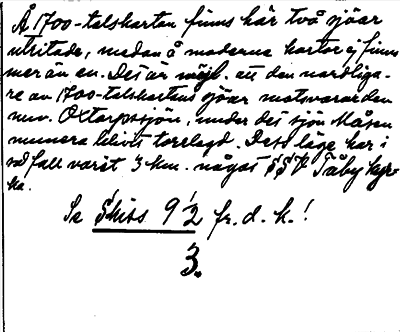 Å 1700-talskartan finns här två sjöar
utritade, medan å moderna kartor ej finns
mer än en. Det är möjl. att den nordliga-
re av 1700-talskartans sjöar motsvarar den
nuv. Oxtorpssjön, under det sjön Måsen
numera blivit torrlagd. Dess läge har i
så fall varit 3 km. något SSV Täby kyr-
ka.
Se Skiss 92 fr. d. k.!
3.